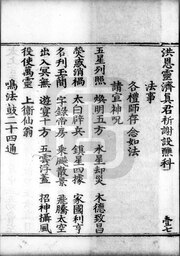 洪恩靈濟真君祈謝設醮科
法事
各禮師存念如法
請宣神呪
五星列照 煥明五方 水星却災 木德致昌
熒惑消禍 太白辟兵 鎮星四據 家國利亨
名刋玉簡 字錄帝房 乘飈散景 飛騰太空
出入冥無 遊宴十方 五雲浮蓋 招神攝風
役使萬靈 上衛仙翁
鳴法鼓二十四通